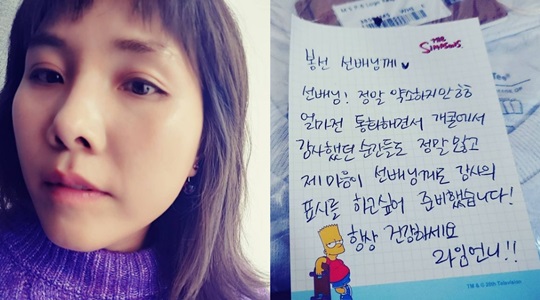 THE
SIMPSONS
봉선 선배님께
선배님! 정말 약소하지만 ㅎㅎ
얼마전 통화하면서 개콘에서
감사했던 순간들도 정말 많고
제 마음이 선배님께도 감사의
표시를 하고싶어 준비했습니다!
항상 건강하세요
라임언니!!
TM & © 20th Television